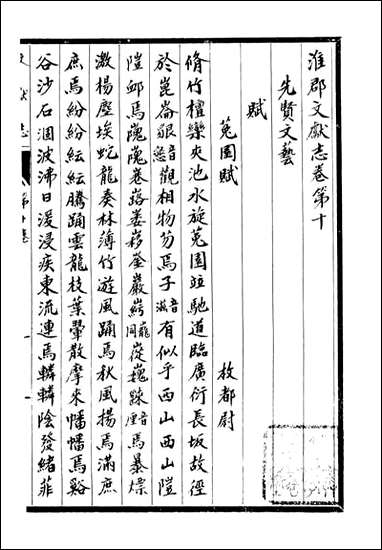 淮郡文獻志卷第十
先賢文藝
賦
菟園賦 枚都尉
脩竹檀欒夾池水旋菟園竝馳道臨廣衍長坂故徑
於崑崙䫀音懇觀相物芴焉子音滋有似乎西山西山隑
隑卹焉隗隗巻路崣㠔崟巖𡾊同龍嵸巍𨅖音煙焉暴熛
激揚塵埃蛇龍奏林薄竹遊風踊焉秋風揚焉滿庶
庶焉紛紛紜紜騰踊雲龍枝葉翬散摩來幡幡焉谿
谷沙石涸波沸日湲浸疾東流連焉轔轔陰發緒菲